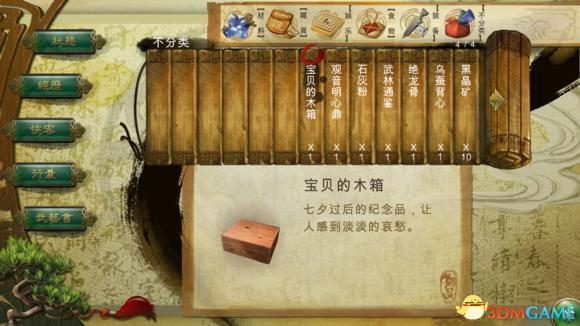 材料
雜貨
娱乐
食物
装备
不分类
不分类
4 / 4
狀態
經歷
俠客
行囊
武藝書
宝贝的木箱 x 1
观音明心鼎 x 1
石灰粉 x 1
武林通鉴 x 1
绝龙骨 x 1
乌蚕背心 x 1
黑晶矿 x 10
宝贝的木箱
七夕过后的纪念品，让
人感到淡淡的哀愁。
物品
3DMGAME